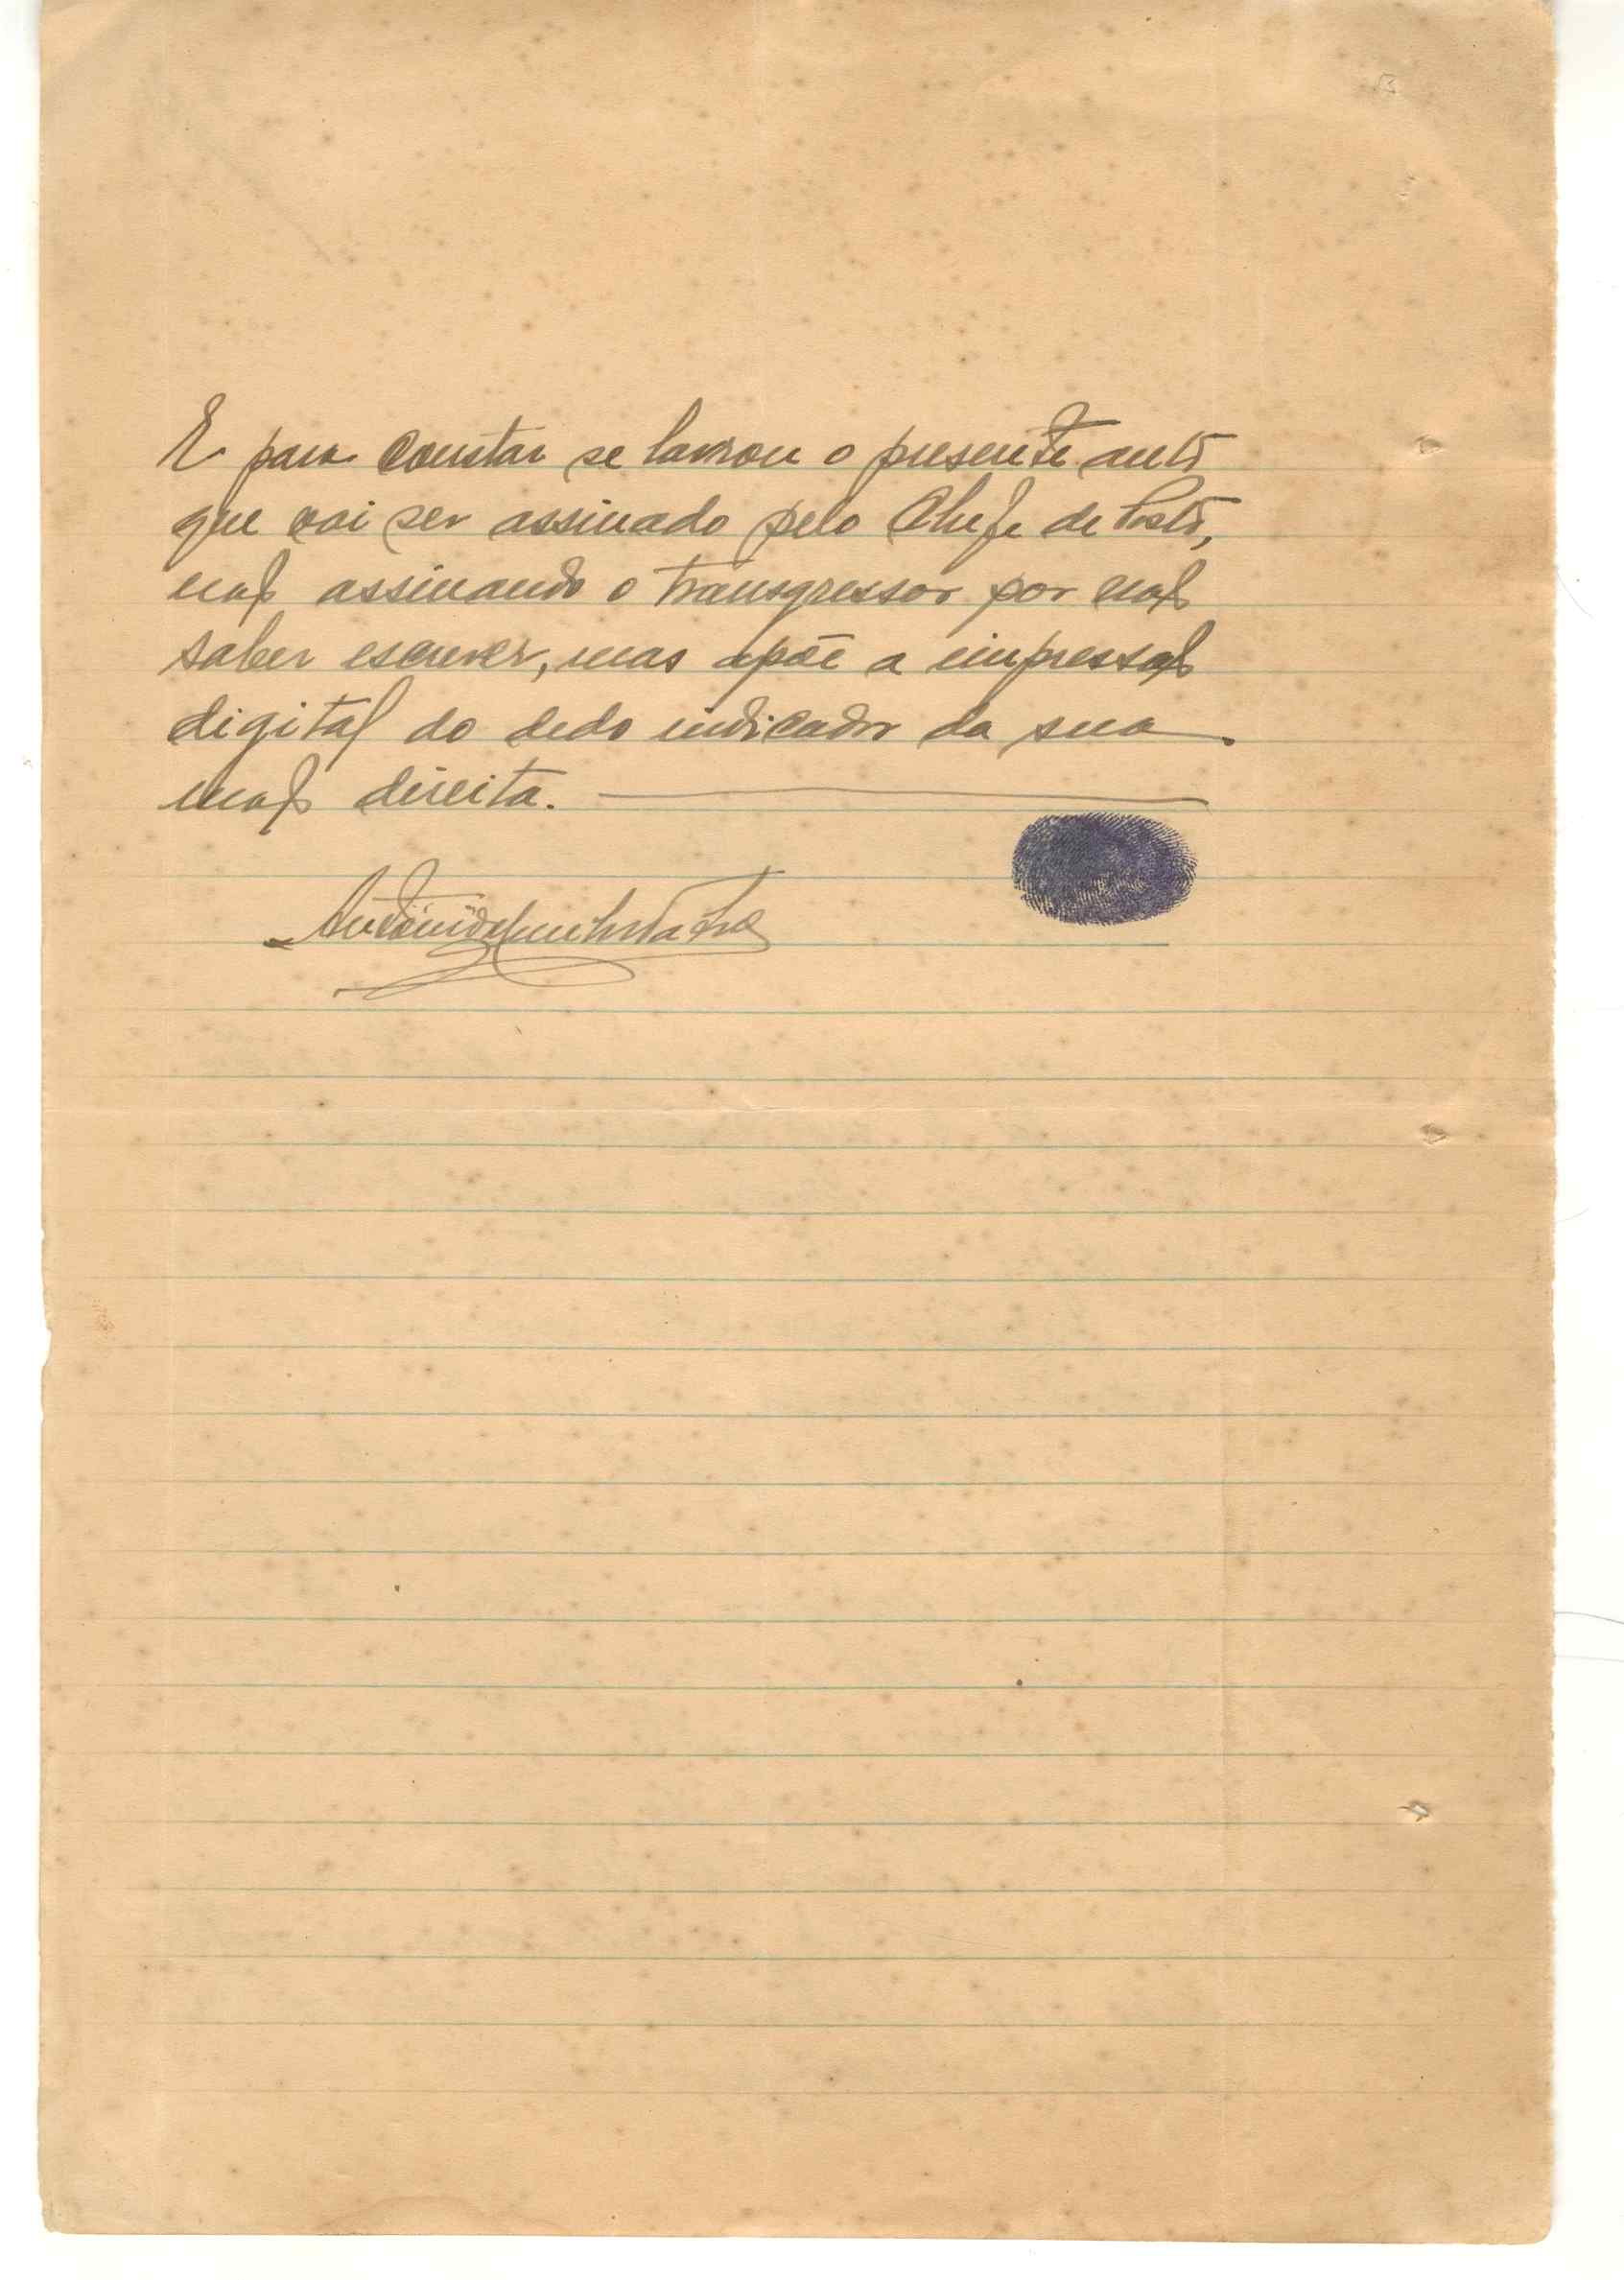 E para constar se lavrou o presente auto
que vai ser assinado pelo Chefe de Posto,
não assinando o transgressor por não
saber escrever, mas apõe a impressão
digital do dedo indicador da sua
mão direita.